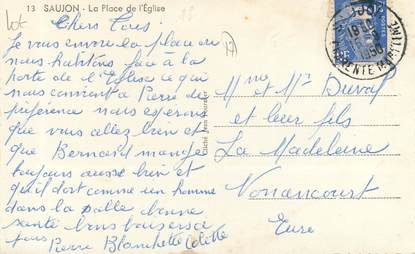 13 SAUJON - La Place de l'Église
lot
17
Chers Tous.
Je vous envoie la place ou
nous habitons face à la
porte de l'Eglise ce qui
nous convient à Pierre de
préférence nous espérons
que vous allez bien et
que Bernard mange
toujours aussi bien et
qu'il dort comme un homme
dans la salle bonne
santé bons baisers a
tous Pierre Blanchette Colette
Cliché Jean
SAUJON
18
1956
CHARENTE MARITIME
Mme et Mr Duval
et leur fils
La Madeleine
Nonancourt
Eure